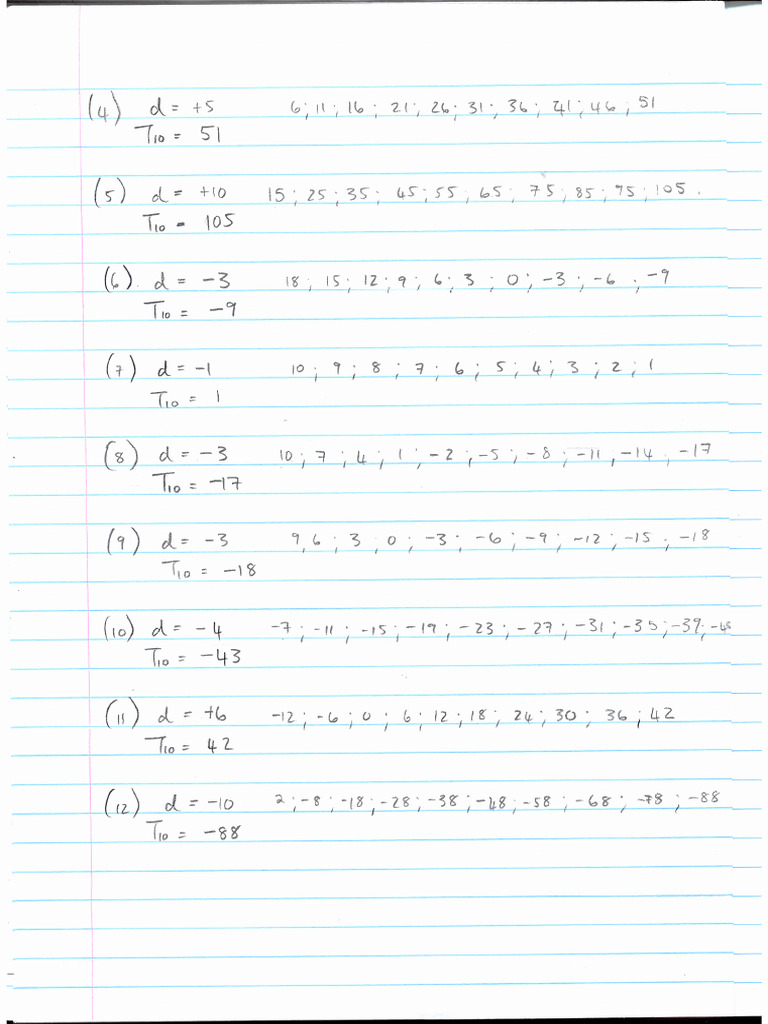 (4) d = +5 6; 11; 16; 21; 26; 31; 36; 41; 46; 51
T10 = 51
(5) d = +10 15; 25; 35; 45; 55; 65; 75; 85; 95; 105.
T10 = 105
(6). d = -3 18; 15; 12; 9; 6; 3; 0; -3; -6; -9
T10 = -9
(7) d = -1 10; 9; 8; 7; 6; 5; 4; 3; 2; 1
T10 = 1
(8) d = -3 10; 7; 4; 1; -2; -5; -8; -11, -14, -17
T10 = -17
(9) d = -3 9, 6; 3; 0; -3; -6; -9; -12; -15; -18
T10 = -18
(10) d = -4 -7; -11; -15; -19; -23; -27; -31; -35; -39; -43
T10 = -43
(11) d = +6 -12; -6; 0; 6; 12; 18; 24; 30; 36; 42
T10 = 42
(12) d = -10 2; -8; -18; -28; -38; -48; -58; -68; -78; -88
T10 = -88